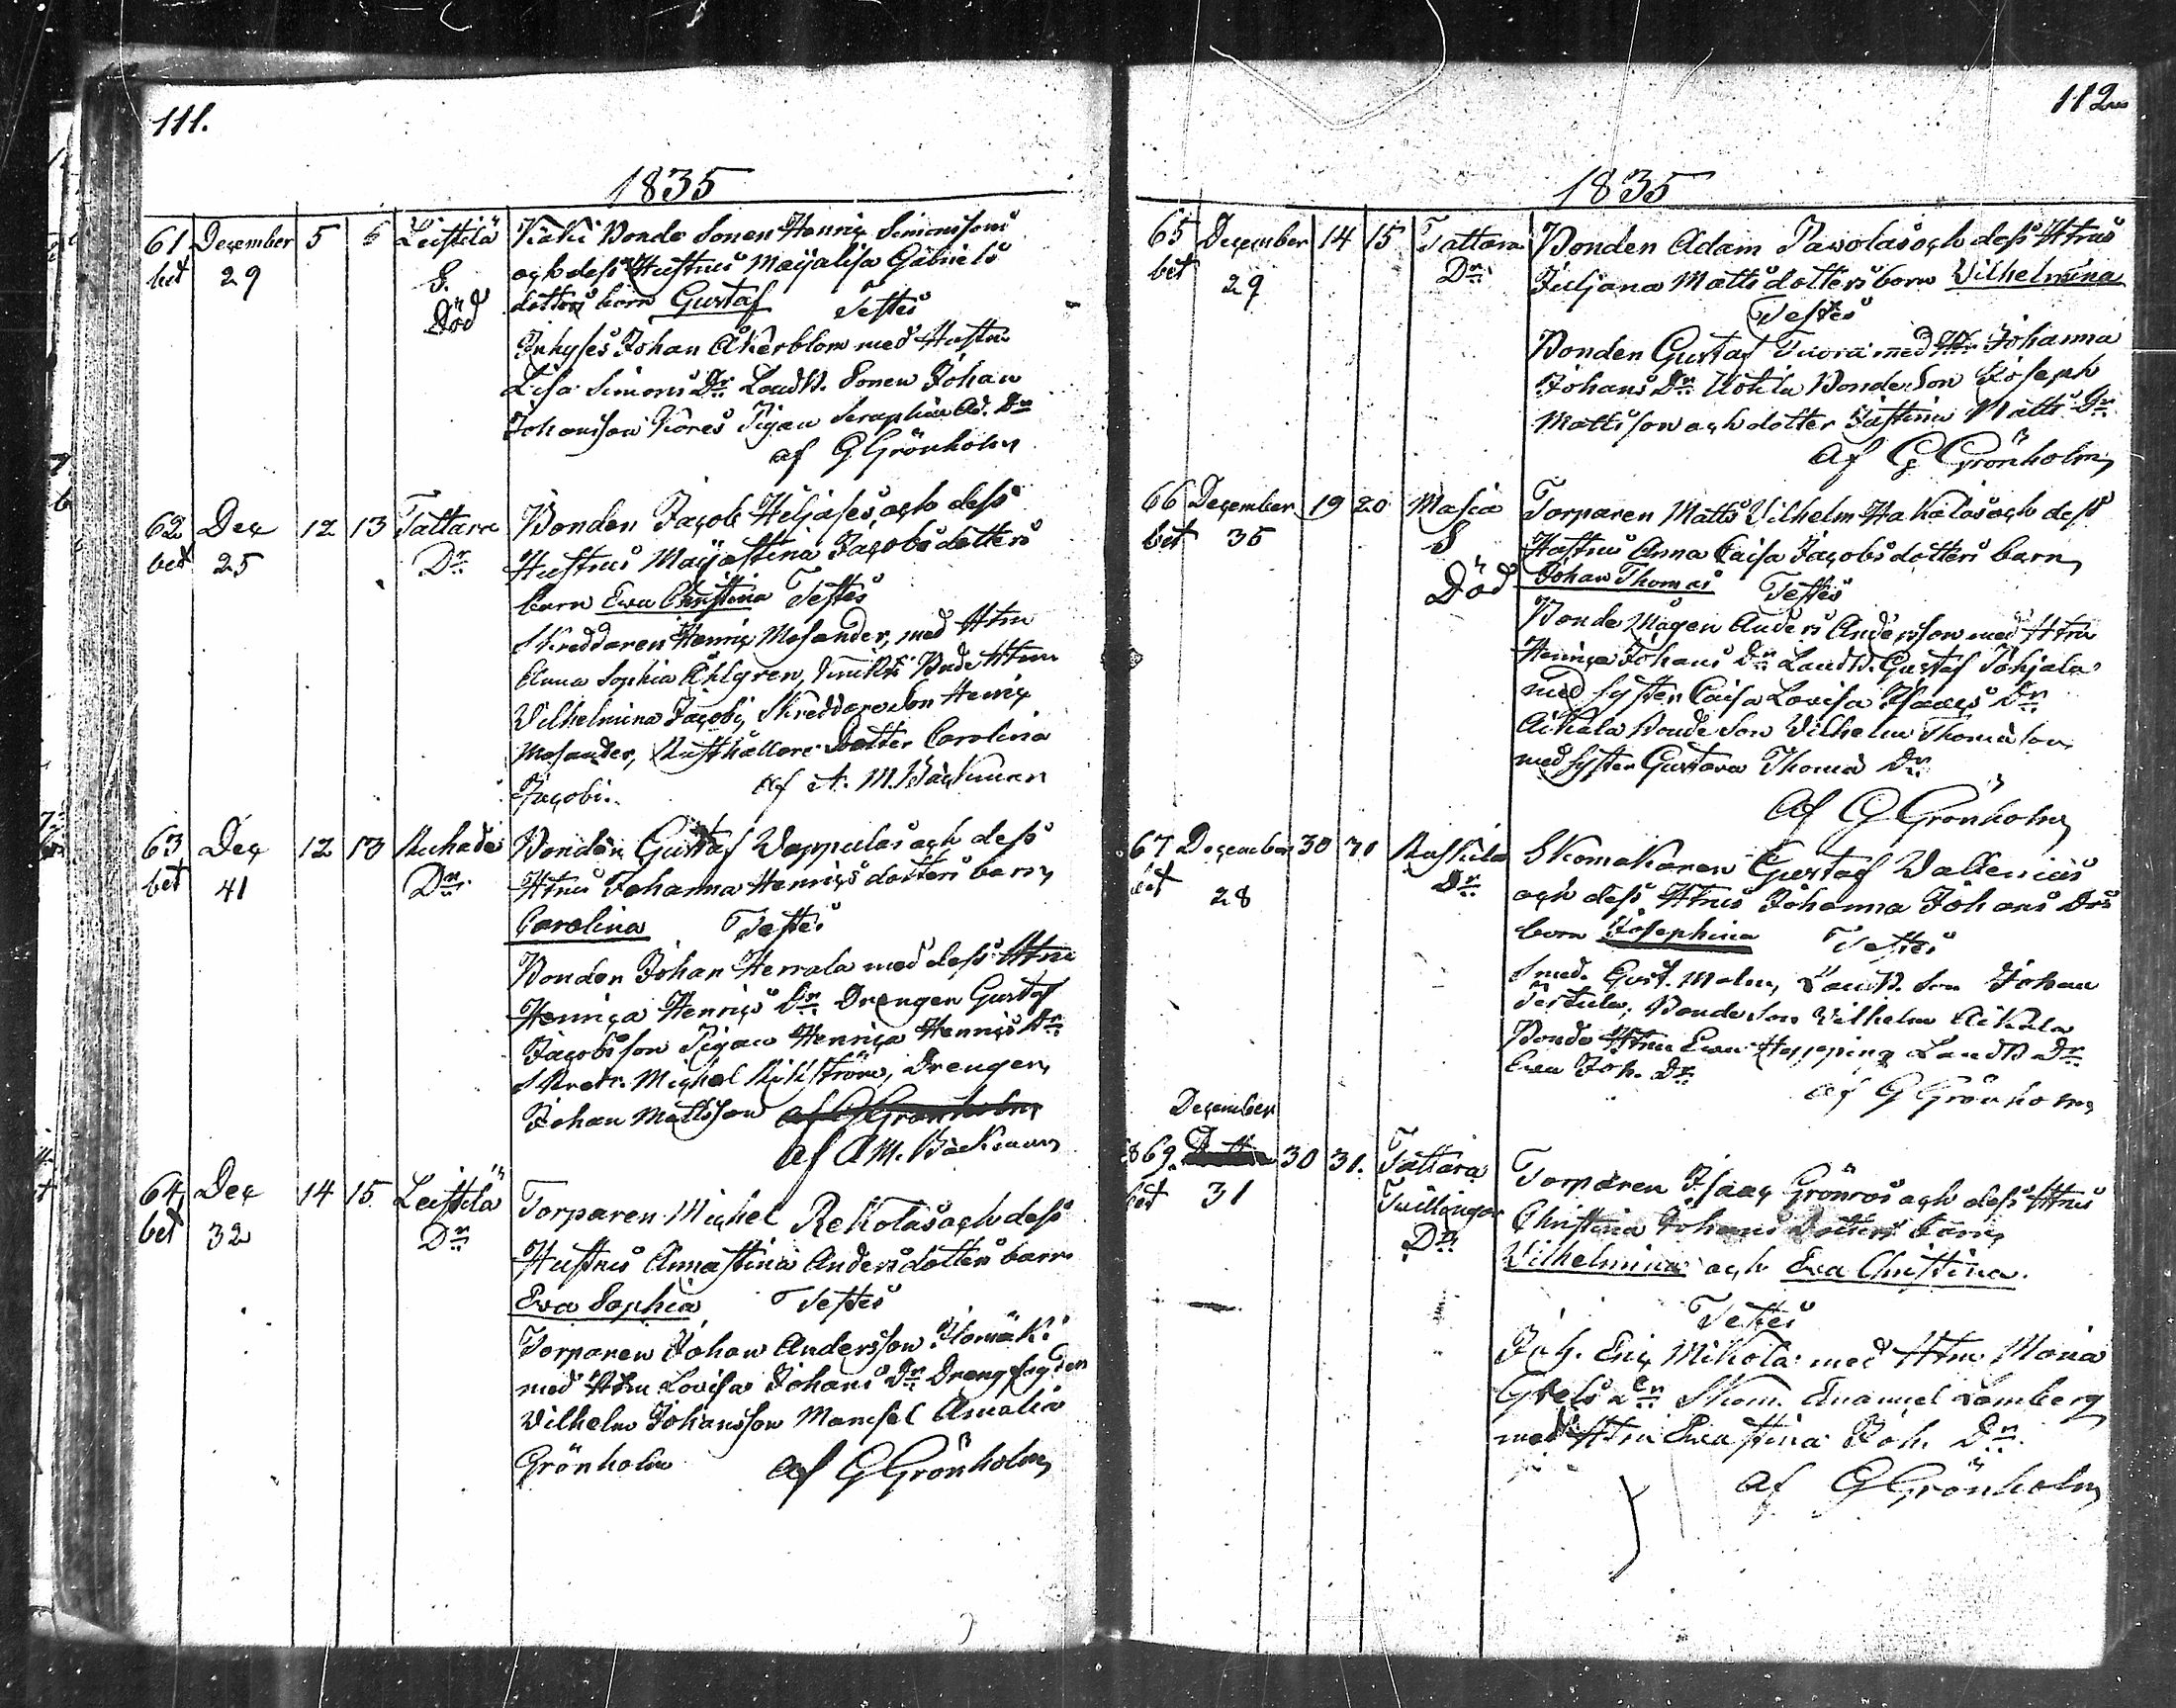 111.
1835
61 December 5 6 Leistilä Kiaki Bonde Sonen Henric Simonssons
bet 29 S. och dess Hustrus Maijalisa Gabriels
Död dotters barn Gustaf Testes
Inhyses Johan Åkerblom med Hustru
Lisa Simons Dr Landb. Sonen Johan
Johansson Pigan Seraphia Ad. Dr
af G Grönholm
62 Dec 12 13 Tattara Bonden Jacob Heljases och dess
bet 25 Dr Hustrus Maijastina Jacobsdotters
barn Eva Christina Testes
Skreddaren Henric Mosander, med Htru
Anna Sophia Ahlgren, Bonde Htru
Vilhelmina Jacobi, Skreddare Son Henric
Mosander, Rusthållare Dotter Carolina
Jacobi. af A. M. Bäckman
63 Dec 12 13 Ruhade Bonden Gustaf Vappulas och dess
bet 41 Dr Htrus Johanna Henricsdotters barn
Carolina Testes
Bonden Johan Herrala med dess Htru
Henrica Henrics Dr Drengen Gustaf
Jacobsson Pigan Henrica Henrics Dr
Michel Drengen
Johan Mattsson af G Grönholm
af A M. Bäckman
64 Dec 14 15 Leistilä Torparen Michel Rekolas och dess
bet 32 Dr Hustrus Annastina Andersdotters barn
Eva Sophia Testes
Torparen Johan Andersson Ilomäki
med Htru Lovisa Johans Dr Dreng
Vilhelm Johansson Mamsel Amalia
Grönholm af G Grönholm
112
1835
65 December 14 15 Tattara Bonden Adam Pavolas och dess Htrus
bet 29 Dr Juljana Mattsdotters barn Vilhelmina
Testes
Bonden Gustaf Tuora med Johanna
Johans Dr Uotila Bonde Son Joseph
Mattsson och dotter Justina Matts Dr
af G Grönholm
66 December 19 20 Masia Torparen Matts Vilhelm Hakalas och dess
bet 35 S Hustrus Anna Caisa Jacobsdotters barn
Död Johan Thomas Testes
Bonde Mågen Anders Andersson med Htru
Henrica Johans Dr Landb. Gustaf Pohjala
med syster Caisa Lovisa Isaacs Dr
Aikala Bonde Son Vilhelm Thomasson
med syster Gustava Thomas Dr
af G Grönholm
67 December 30 31 Raskila Skomakaren Gustaf Valtenius
bet 28 Dr och dess Htrus Johanna Johans Drs
barn Josephina Testes
Smed. Gust. Malm, Landb. Son Johan
Bonde Son Vilhelm Aikala
Bonde Htru Eva Landb Dr
Eva Joh. Dr
af G Grönholm
December
869. 30 31. Tattara Torparen Isaac Grönros och dess Htrus
bet 31 Twillingar Christina Johans Dotters barn
Dr Vilhelmina och Eva Christina.
Testes
Inh. Eric Mikola med Htru Maria
Dr Skom. Emanuel Lamberg
med Htru Evastina Joh. Dr.
af G Grönholm